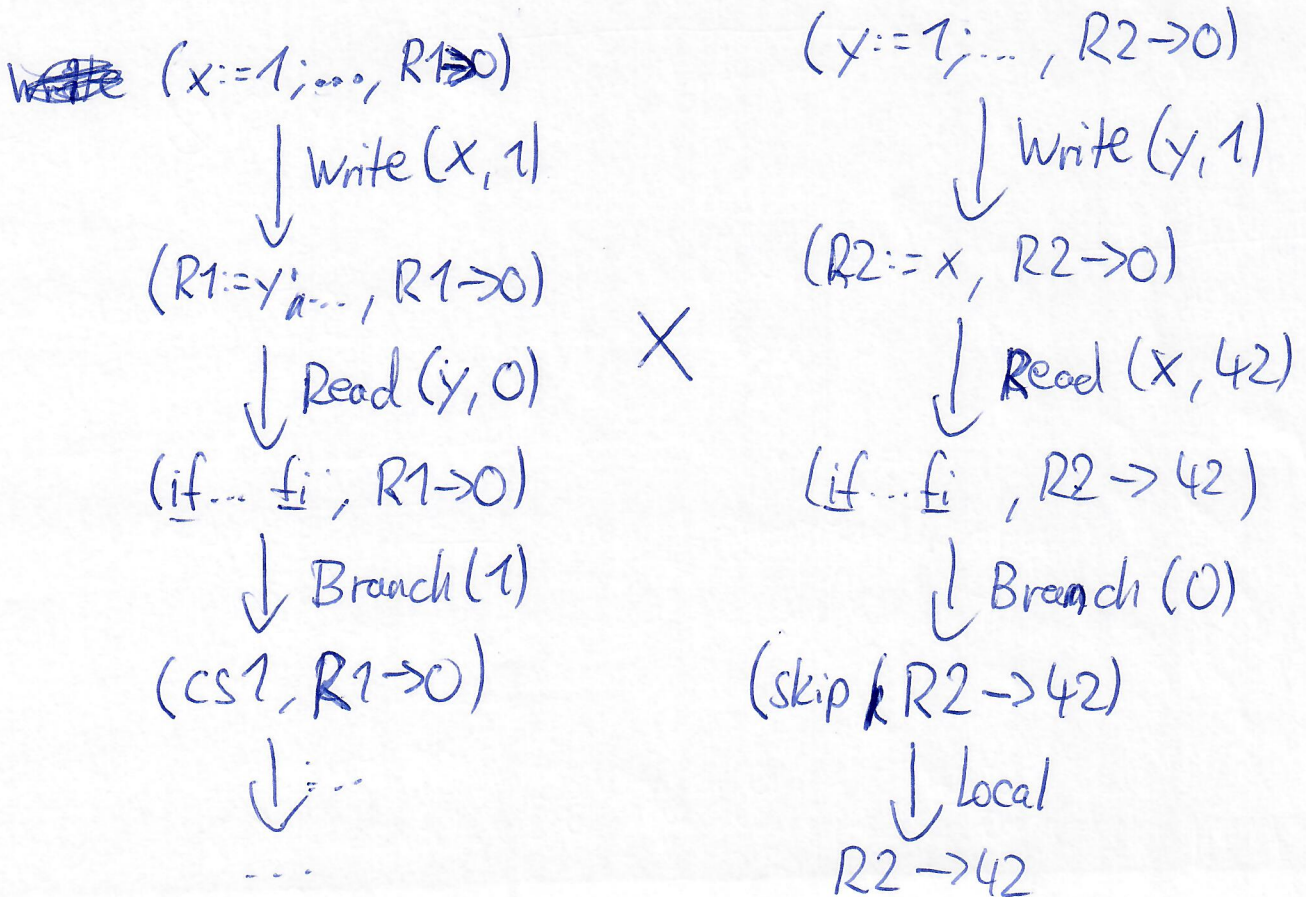 (x:=1;..., R1→0)
Write(x,1)
(R1:=y;..., R1→0)
Read(y,0)
(if... fi, R1→0)
Branch(1)
(cs1, R1→0)
...
...
X
(y:=1;..., R2→0)
Write(y,1)
(R2:=x, R2→0)
Read(x,42)
(if...fi, R2→42)
Branch(0)
(skip, R2→42)
Local
R2→42